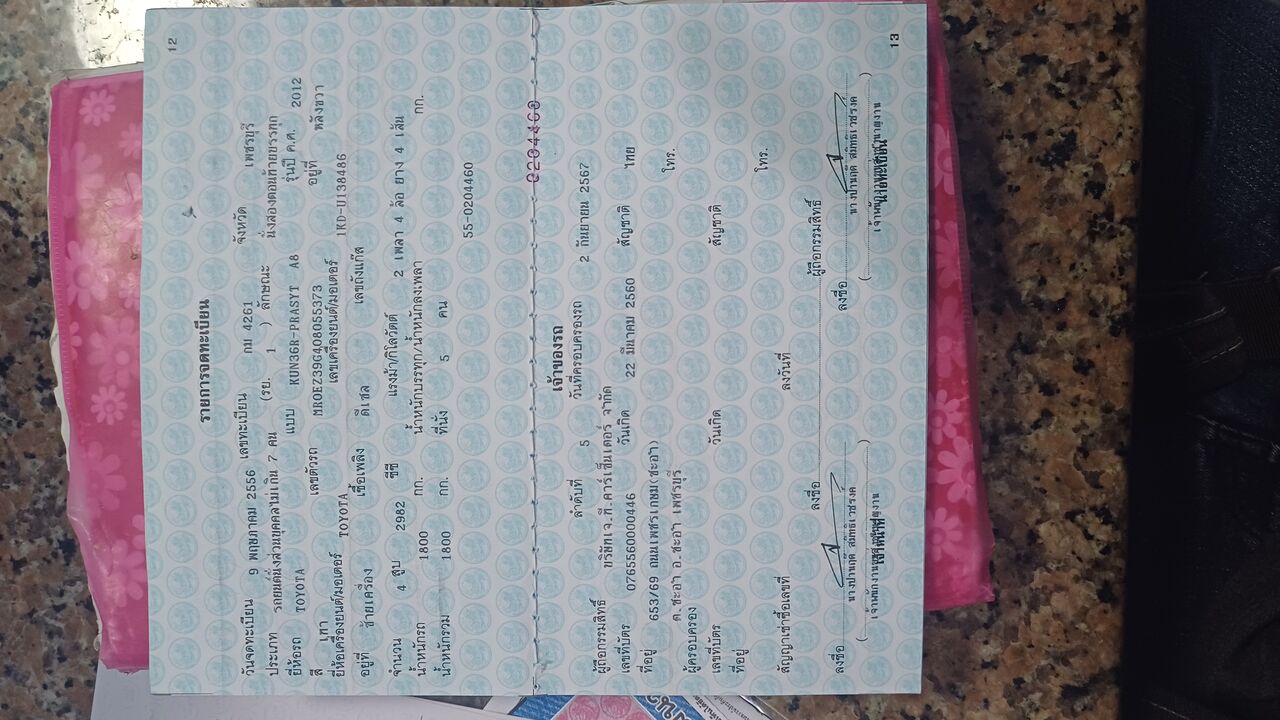 12
รายการจดทะเบียน
วันจดทะเบียน 9 พฤษภาคม 2556 เลขทะเบียน กม 4261 จังหวัด เพชรบุรี
ประเภท รถยนต์นั่งส่วนบุคคลไม่เกิน 7 คน (รย. 1 ) ลักษณะ นั่งสองตอนท้ายบรรทุก
ยี่ห้อรถ TOYOTA แบบ KUN36R-PRASYT A8 รุ่นปี ค.ศ. 2012
สี เทา เลขตัวรถ MR0EZ39G408055373 อยู่ที่ หลังขวา
ยี่ห้อเครื่องยนต์/มอเตอร์ TOYOTA เลขเครื่องยนต์/มอเตอร์ 1KD-U138486
อยู่ที่ ซ้ายเครื่อง เชื้อเพลิง ดีเซล เลขถังแก๊ส
จำนวน 4 สูบ 2982 ซีซี แรงม้า/กิโลวัตต์ 2 เพลา 4 ล้อ ยาง 4 เส้น
น้ำหนักรถ 1800 กก. น้ำหนักบรรทุก/น้ำหนักลงเพลา กก.
น้ำหนักรวม 1800 กก. ที่นั่ง 5 คน
55-0204460
0204460
เจ้าของรถ
ลำดับที่ 5 วันที่ครอบครองรถ 2 กันยายน 2567
ผู้ถือกรรมสิทธิ์ บริษัทเจ.ที.คาร์เซ็นเตอร์ จำกัด
เลขที่บัตร 0765560000446 วันเกิด 22 มีนาคม 2560 สัญชาติ ไทย
ที่อยู่ 653/69 ถนนเพชรเกษม(ชะอำ) โทร.
ต.ชะอำ อ.ชะอำ เพชรบุรี
ผู้ครอบครอง
เลขที่บัตร วันเกิด สัญชาติ
ที่อยู่ โทร.
สัญญาเช่าซื้อเลขที่ ลงวันที่
ลงชื่อ ผู้ถือกรรมสิทธิ์
ลงชื่อ ลงชื่อ
( ) ( )
13